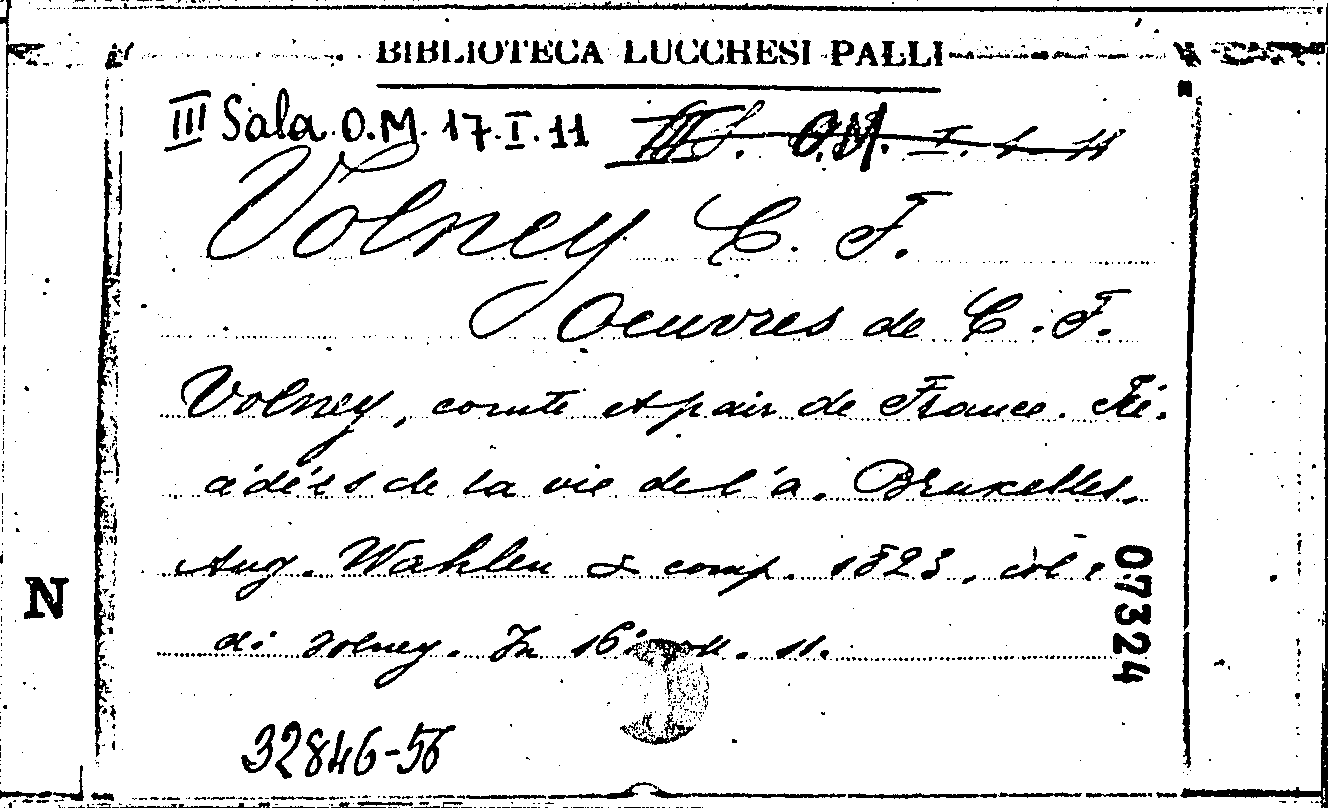 BIBLIOTECA LUCCHESI PALLI
III Sala O.M. 17.I.11 III S. O.M. I. 1 11
Volney C. F.
Oeuvres de C. F.
Volney, comte et pair de France.
de la vie de l'a. Bruxelles,
Aug. Wahlen & comp. 1823, col r.
di Volney. In 16° voll. 11.
07324
N
32846-56